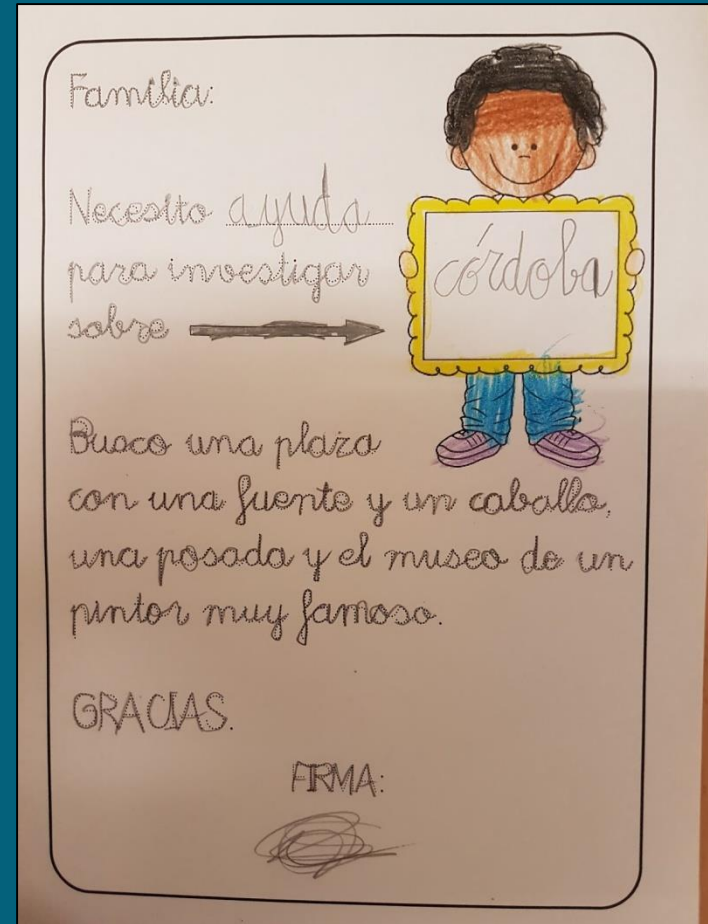 Familia:
Necesito ayuda
para investigar
sobre
córdoba
Busco una plaza
con una fuente y un caballo,
una posada y el museo de un
pintor muy famoso.
GRACIAS.
FIRMA: